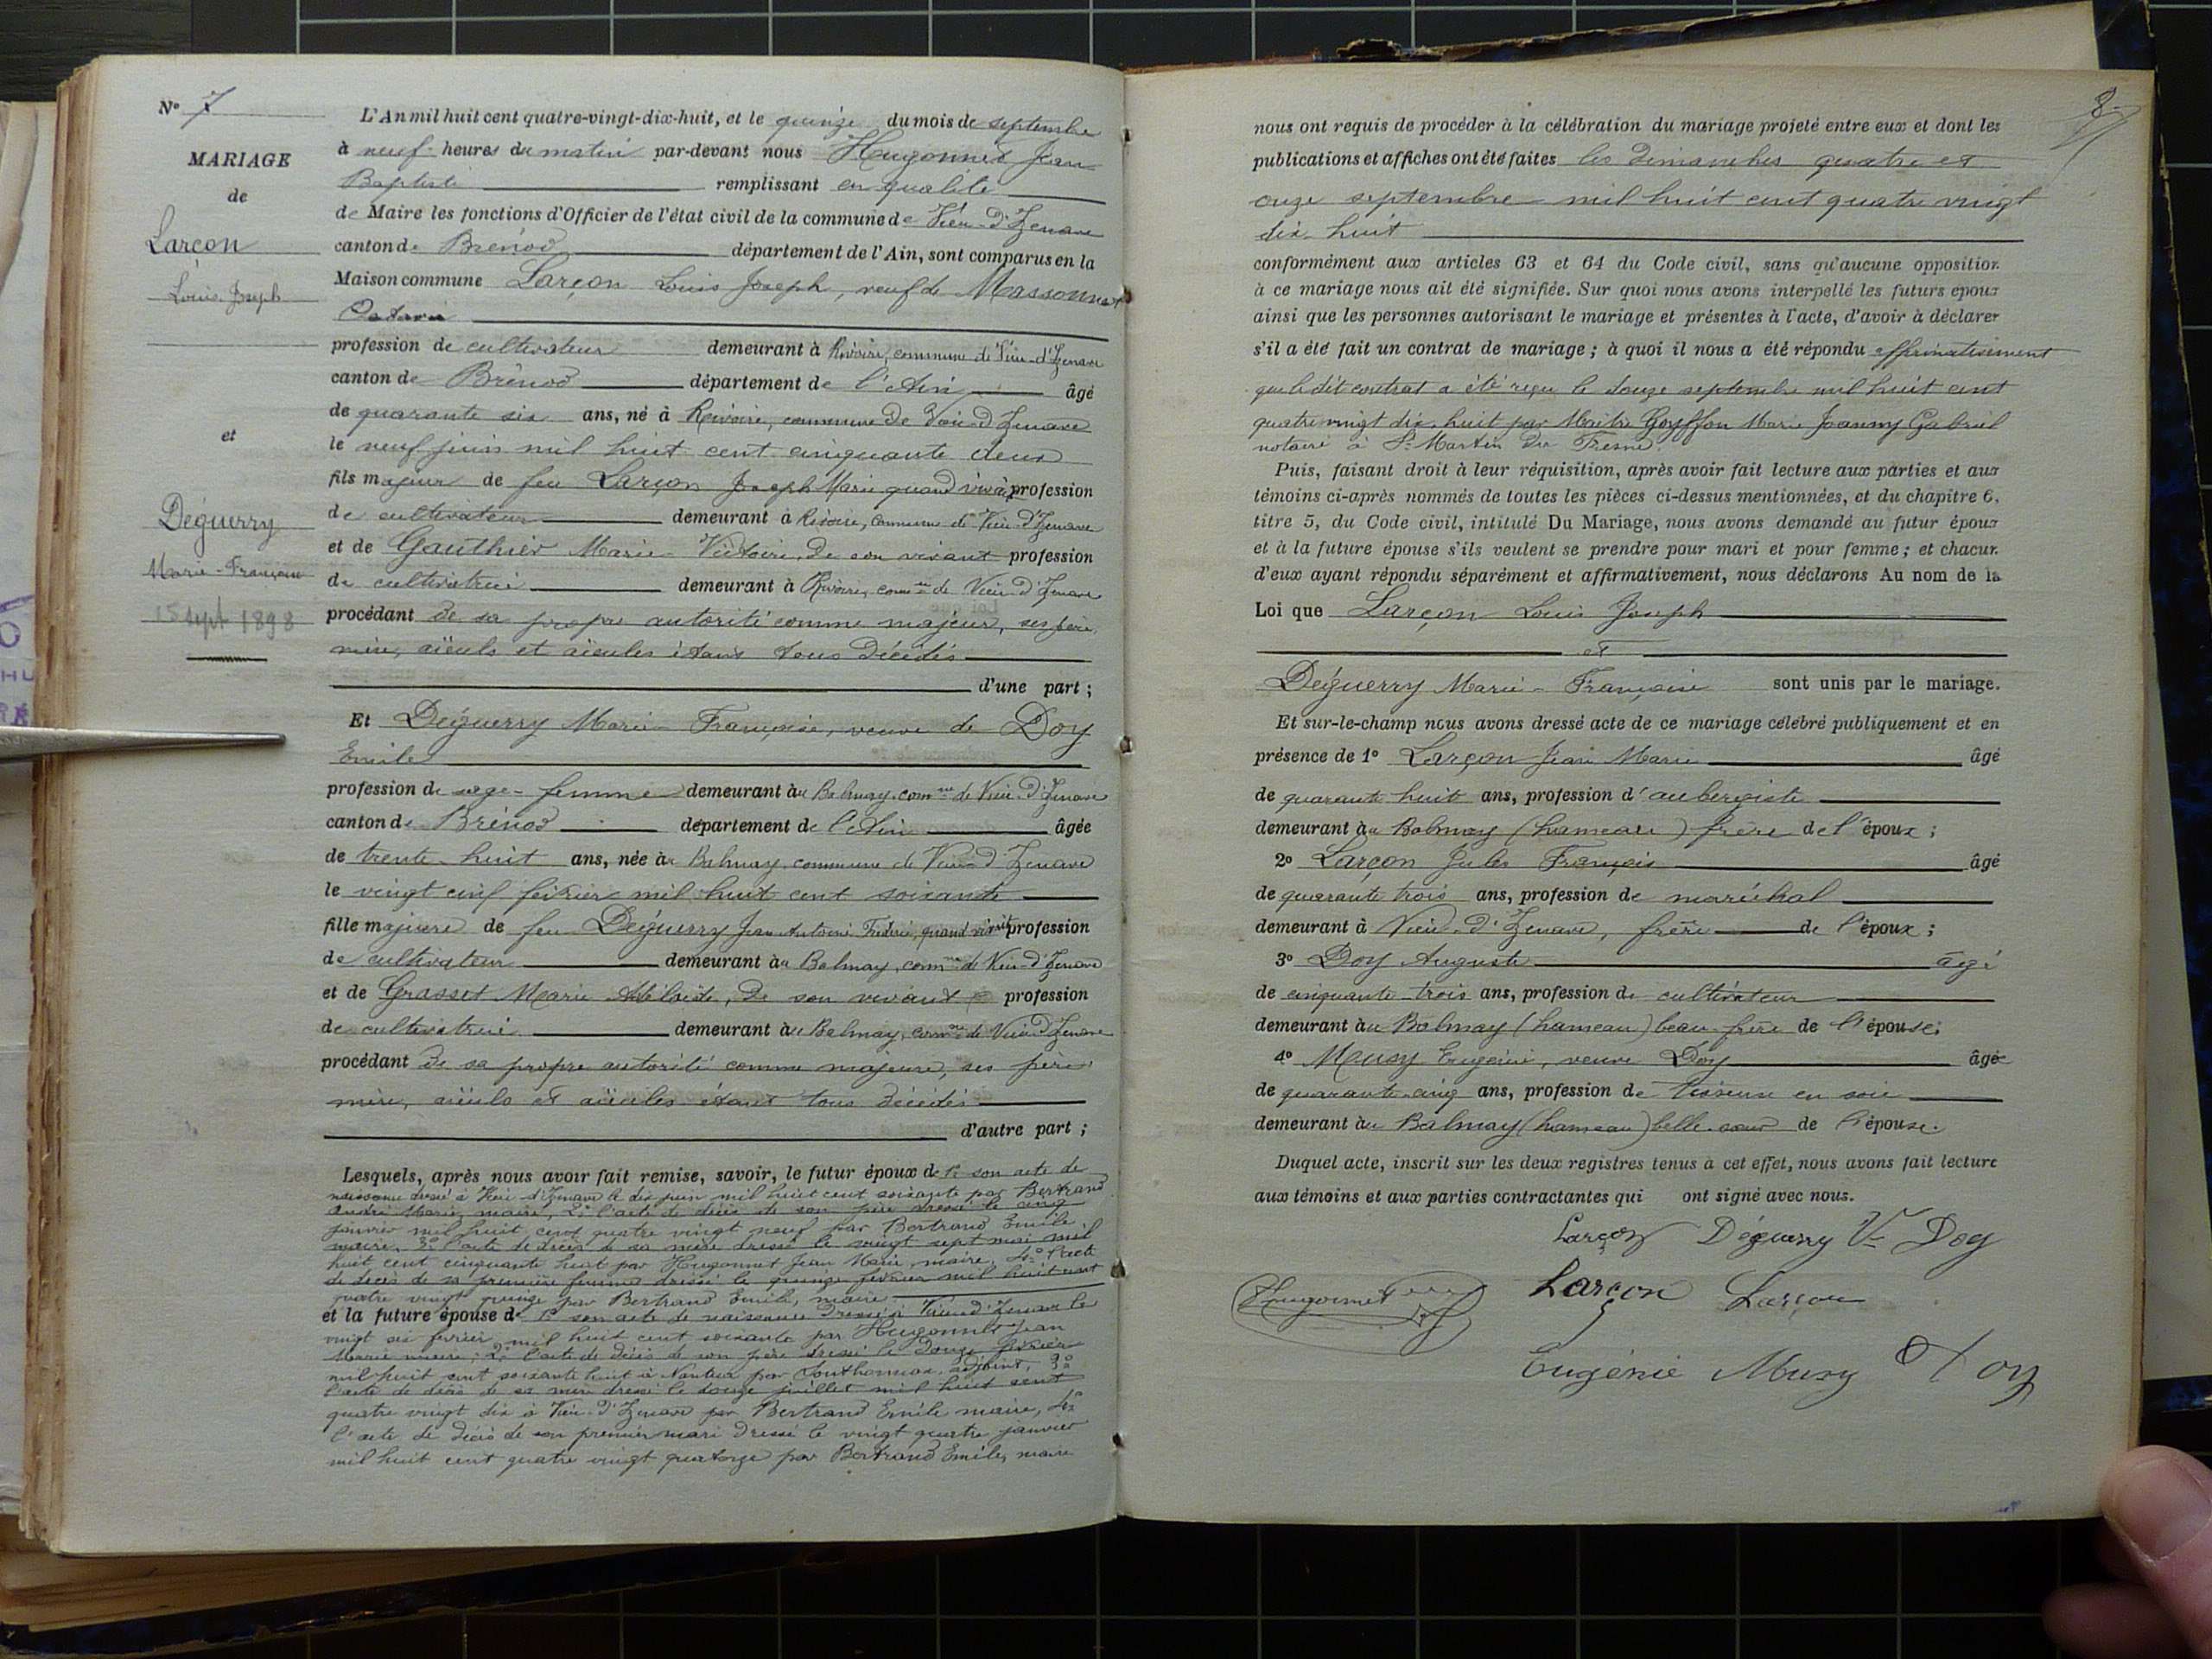 N° 7
MARIAGE
de
Larçon
Louis Joseph
et
Déguerry
Marie-Françoise
15 sept 1898
L'An mil huit cent quatre-vingt-dix-huit, et le quinze du mois de septembre
à neuf heures du matin par-devant nous Hugonnet Jean
Baptiste remplissant en qualité
de Maire les fonctions d'Officier de l'état civil de la commune de Vieu-d'Izenave
canton de Brénod département de l'Ain, sont comparus en la
Maison commune Larçon Louis Joseph, veuf de Massonnet
profession de cultivateur demeurant à Rivoire, commune de Vieu-d'Izenave
canton de Brénod département de l'Ain âgé
de quarante six ans, né à Rivoire, commune de Vieu-d'Izenave
le neuf juin mil huit cent cinquante deux
fils majeur de feu Larçon Joseph Marie quand vivait profession
de cultivateur demeurant à Rivoire, commune de Vieu-d'Izenave
et de Gauthier Marie-Victoire, de son vivant profession
de cultivatrice demeurant à Rivoire, comne de Vieu-d'Izenave
procédant de sa propre autorité comme majeur, ses père,
mère, aïeuls et aïeules étant tous décédés
d'une part ;
Et Déguerry Marie-Françoise, veuve de Doy
Emile
profession de sage-femme demeurant au Balmay, comne de Vieu-d'Izenave
canton de Brénod département de l'Ain âgée
de trente-huit ans, née au Balmay, commune de Vieu-d'Izenave
le vingt cinq février mil huit cent soixante
fille majeure de feu Déguerry Jean Antoine Frédéric, quand vivait profession
de cultivateur demeurant au Balmay, comne de Vieu-d'Izenave
et de Grasset Marie Adélaïde, de son vivant profession
de cultivatrice demeurant au Balmay, comne de Vieu-d'Izenave
procédant de sa propre autorité comme majeure, ses père
mère, aïeuls et aïeules étant tous décédés
d'autre part ;
Lesquels, après nous avoir fait remise, savoir, le futur époux de 1° son acte de
naissance dressé à Vieu-d'Izenave le dix juin mil huit cent soixante par Bertrand
André Marie, maire, 2° l'acte de décès de son père dressé le cinq
janvier mil huit cent quatre vingt neuf par Bertrand Emile,
maire, 3° l'acte de décès de sa mère dressé le vingt sept mai mil
huit cent cinquante huit par Hugonnet Jean Marie, maire, 4° l'acte
de décès de sa première femme dressé le quinze février mil huit cent
quatre vingt quinze par Bertrand Emile, maire
et la future épouse de 1° son acte de naissance dressé à Vieu-d'Izenave le
vingt six février mil huit cent soixante par Hugonnet Jean
Marie maire ; 2° l'acte de décès de son père dressé le douze février
mil huit cent soixante huit à Nantua par adjoint, 3°
l'acte de décès de sa mère dressé le douze juillet mil huit cent
quatre vingt dix à Vieu-d'Izenave par Bertrand Emile maire, 4°
l'acte de décès de son premier mari dressé le vingt quatre janvier
mil huit cent quatre vingt quatorze par Bertrand Emile, maire
nous ont requis de procéder à la célébration du mariage projeté entre eux et dont les
publications et affiches ont été faites les dimanches quatre et
onze septembre mil huit cent quatre vingt
dix-huit
conformément aux articles 63 et 64 du Code civil, sans qu'aucune opposition
à ce mariage nous ait été signifiée. Sur quoi nous avons interpellé les futurs époux
ainsi que les personnes autorisant le mariage et présentes à l'acte, d'avoir à déclarer
s'il a été fait un contrat de mariage ; à quoi il nous a été répondu affirmativement
que le dit contrat a été reçu le douze septembre mil huit cent
quatre vingt dix-huit par Maître Goyffon Marie Joanny Gabriel
notaire à St Martin du Fresne.
Puis, faisant droit à leur réquisition, après avoir fait lecture aux parties et aux
témoins ci-après nommés de toutes les pièces ci-dessus mentionnées, et du chapitre 6,
titre 5, du Code civil, intitulé Du Mariage, nous avons demandé au futur époux
et à la future épouse s'ils veulent se prendre pour mari et pour femme ; et chacun
d'eux ayant répondu séparément et affirmativement, nous déclarons Au nom de la
Loi que Larçon Louis Joseph
et
Déguerry Marie-Françoise sont unis par le mariage.
Et sur-le-champ nous avons dressé acte de ce mariage célébré publiquement et en
présence de 1° Larçon Jean Marie âgé
de quarante huit ans, profession d'aubergiste
demeurant au Balmay (hameau) frère de l'époux ;
2° Larçon Jules François âgé
de quarante trois ans, profession de maréchal
demeurant à Vieu-d'Izenave, frère de l'époux ;
3° Doy Auguste âgé
de cinquante-trois ans, profession de cultivateur
demeurant au Balmay (hameau) beau-frère de l'épouse ;
4° Meusy Eugénie, veuve Doy âgée
de quarante-cinq ans, profession de tisseuse en soie
demeurant au Balmay (hameau) belle-sœur de l'épouse.
Duquel acte, inscrit sur les deux registres tenus à cet effet, nous avons fait lecture
aux témoins et aux parties contractantes qui ont signé avec nous.
Larçon Déguerry Ve Doy
Hugonnet Larçon Larçon
Eugénie Musy Doy